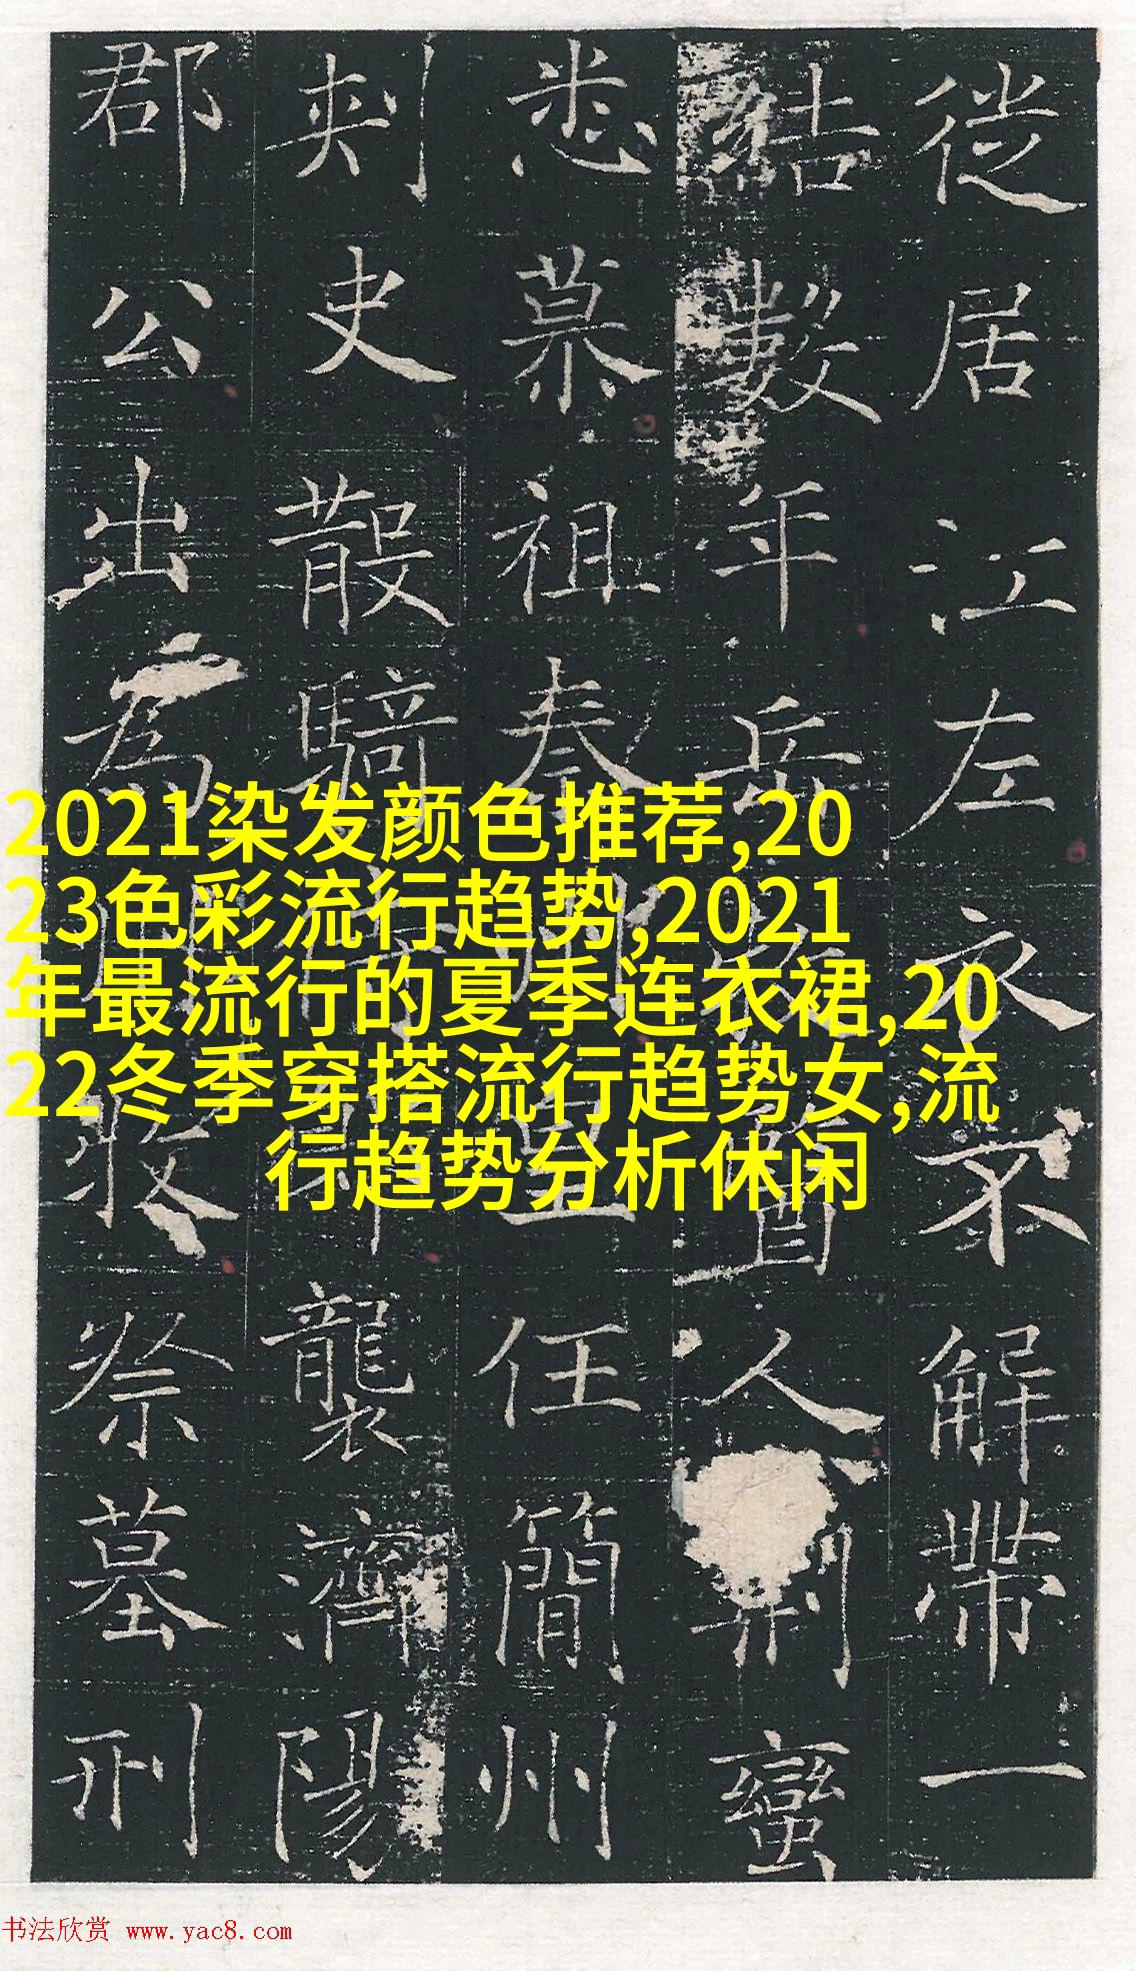 徙居江左衣不解帶一
數年岳酋人荊蠻
悉慕祖奉任簡州
刺史散騎襲濟陽
郡公出為將祭墓刑
2021染发颜色推荐,20
23色彩流行趋势,2021
年最流行的夏季连衣裙,20
22冬季穿搭流行趋势女,流
行趋势分析休闲
书法欣赏 www.yac8.com